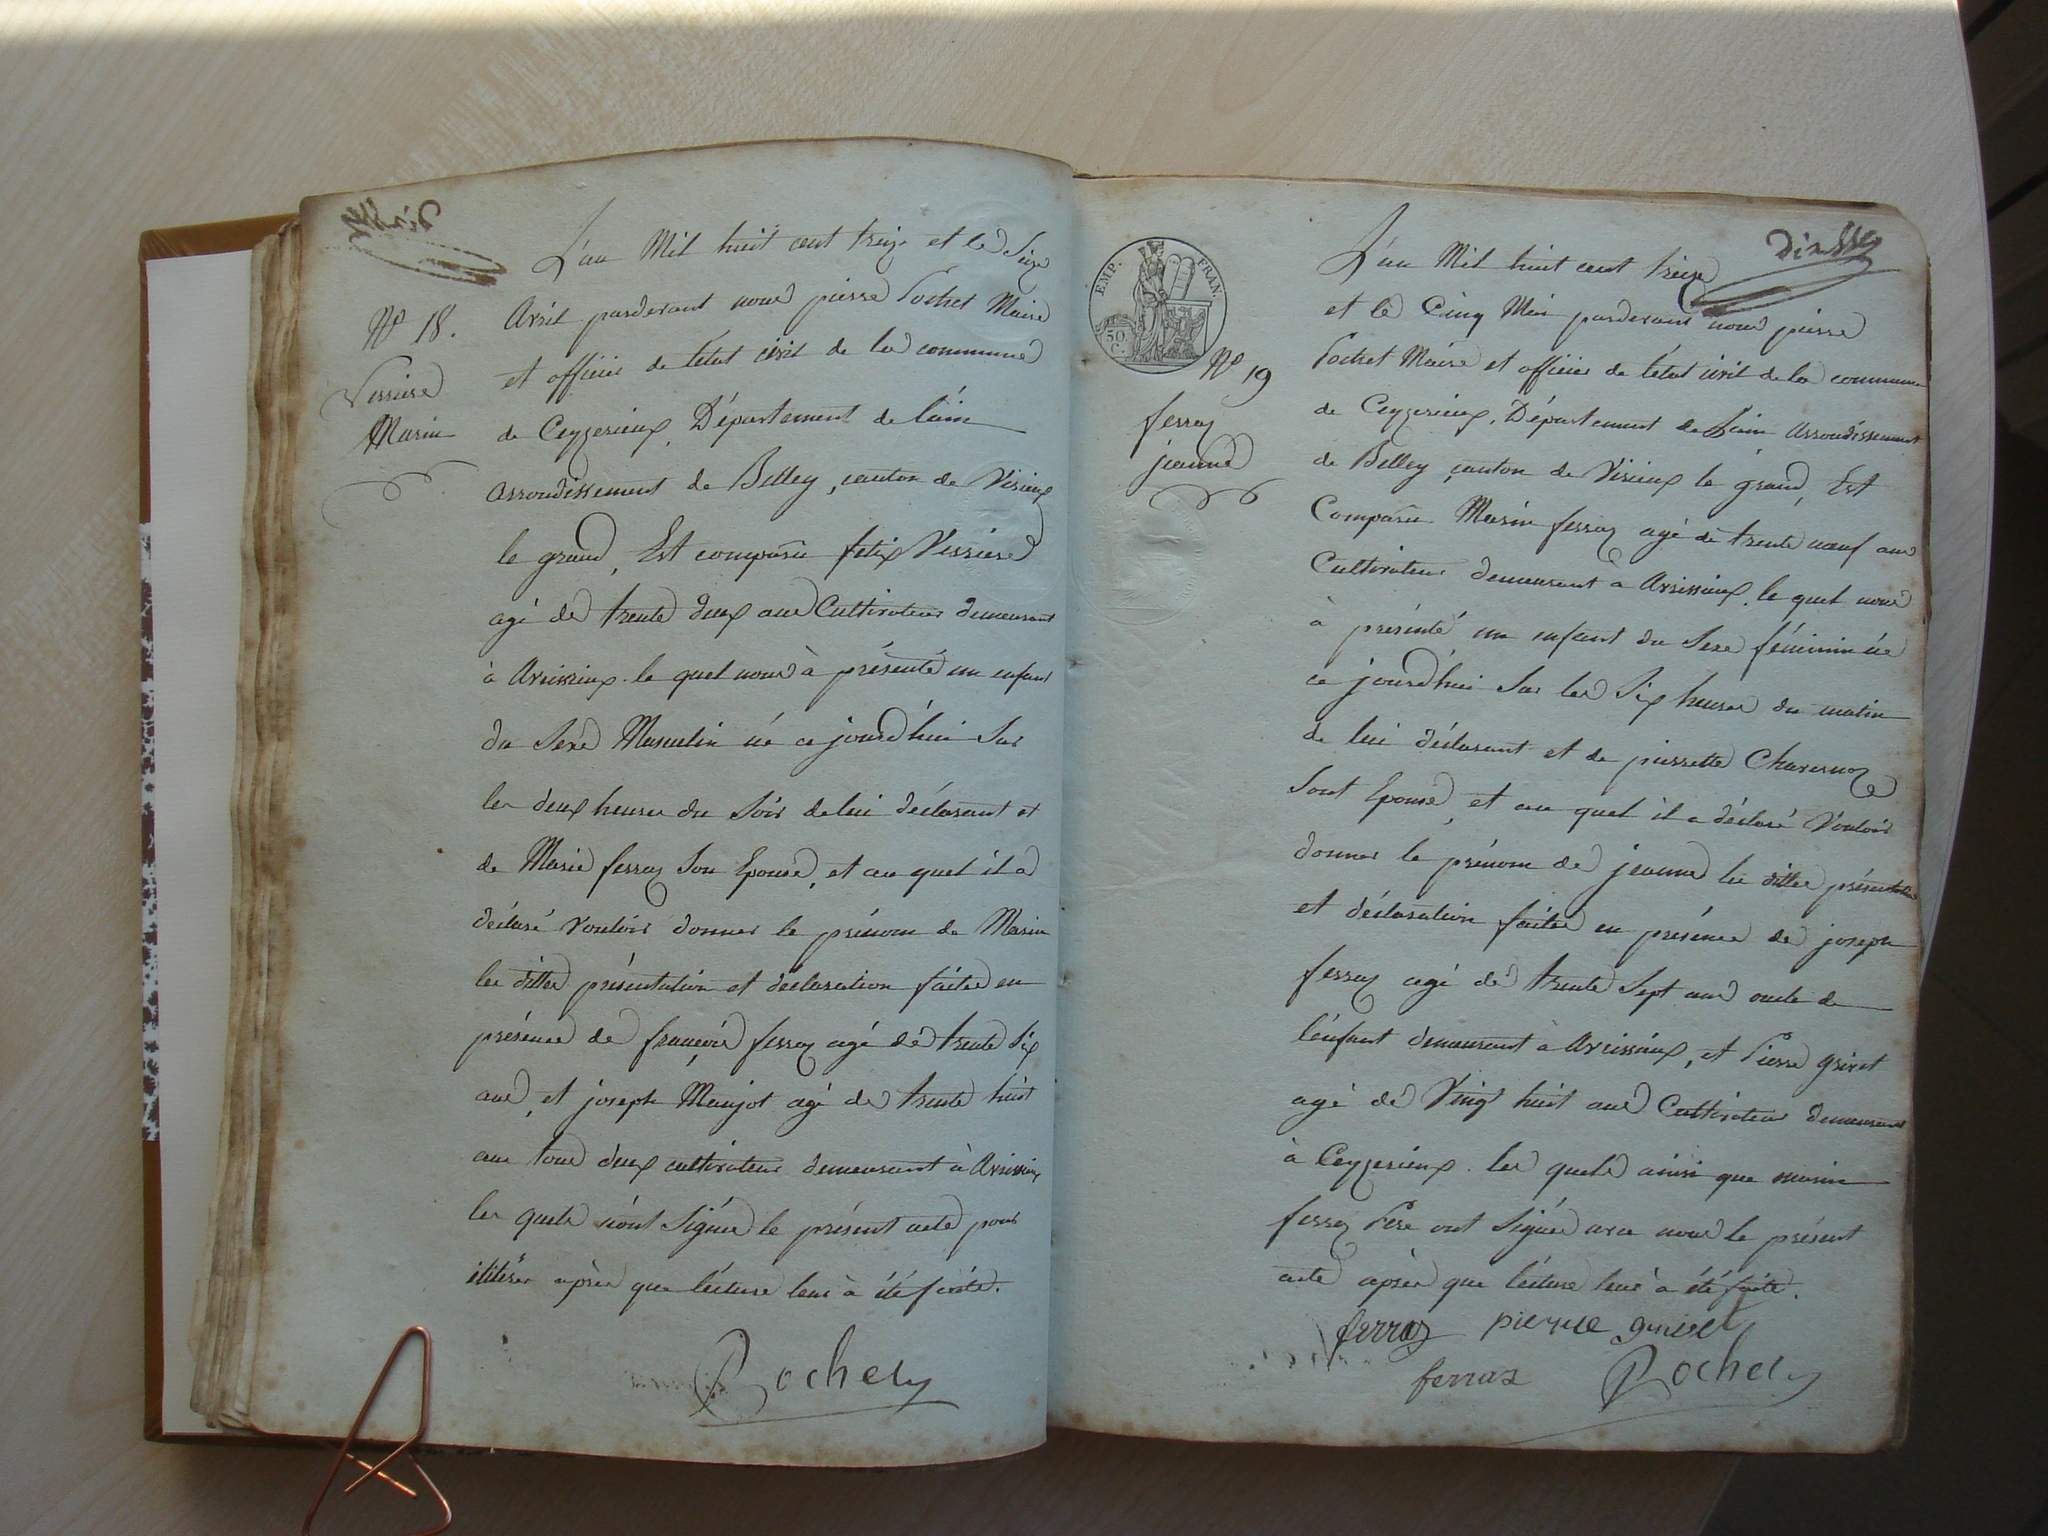 L'an Mil huit cent treize et le Seize
N° 18.
Avril pardevant nous pierre Pochet Maire
et officier de l'état civil de la commune
Verriere
Marin
de Ceyzerieux, Département de l'ain
arrondissement de Belley, canton de Virieux
le grand, Est comparu felix Verriere
agé de trente deux ans Cultivateur demeurant
à Avrissieux le quel nous à présenté un enfant
du Sexe Masculin né ce jourd'hui Sur
les deux heures du Soir de lui déclarant et
de Marie ferraz Son Epouse, et au quel il a
déclaré vouloir donner le prénom de Marin
les dittes présentation et déclaration faites en
présence de françois ferraz agé de trente Six
ans, et joseph Manjot agé de trente huit
ans tous deux cultivateurs demeurant à Avrissieux
les quels n'ont Signés le présent acte pour
illitérés après que lécture leur à été faite.
Pochet
Dinsse
EMP. FRAN.
50 C.
N° 19
ferraz
jeanne
L'an Mil huit cent treize
et le Cinq Mai pardevant nous pierre
Pochet Maire et officier de l'état civil de la commune
de Ceyzerieux, Département de Lain arrondissement
de Belley, canton de Virieux le grand, Est
Comparu Marin ferraz agé de trente neuf ans
Cultivateur demeurant a Avrissieux. le quel nous
à présenté un enfant du Sexe féminin né
ce jourd'hui Sur les Six heures du matin
de lui déclarant et de pierrette Charvenoz
Sont Epouse, et au quel il a déclaré Vouloir
donner le prénom de jeanne les dittes présentation
et déclaration faites en présence de joseph
ferraz agé de trente Sept ans oncle de
l'enfant demeurant à Avrissieux, et Pierre grivet
agé de Vingt huit ans Cultivateur demeurant
à Ceyzerieux. les quels ainsi que marin
ferraz Pere ont Signés avec nous le présent
acte après que lécture leur à été faite.
ferraz pierre grivet
ferraz Pochet